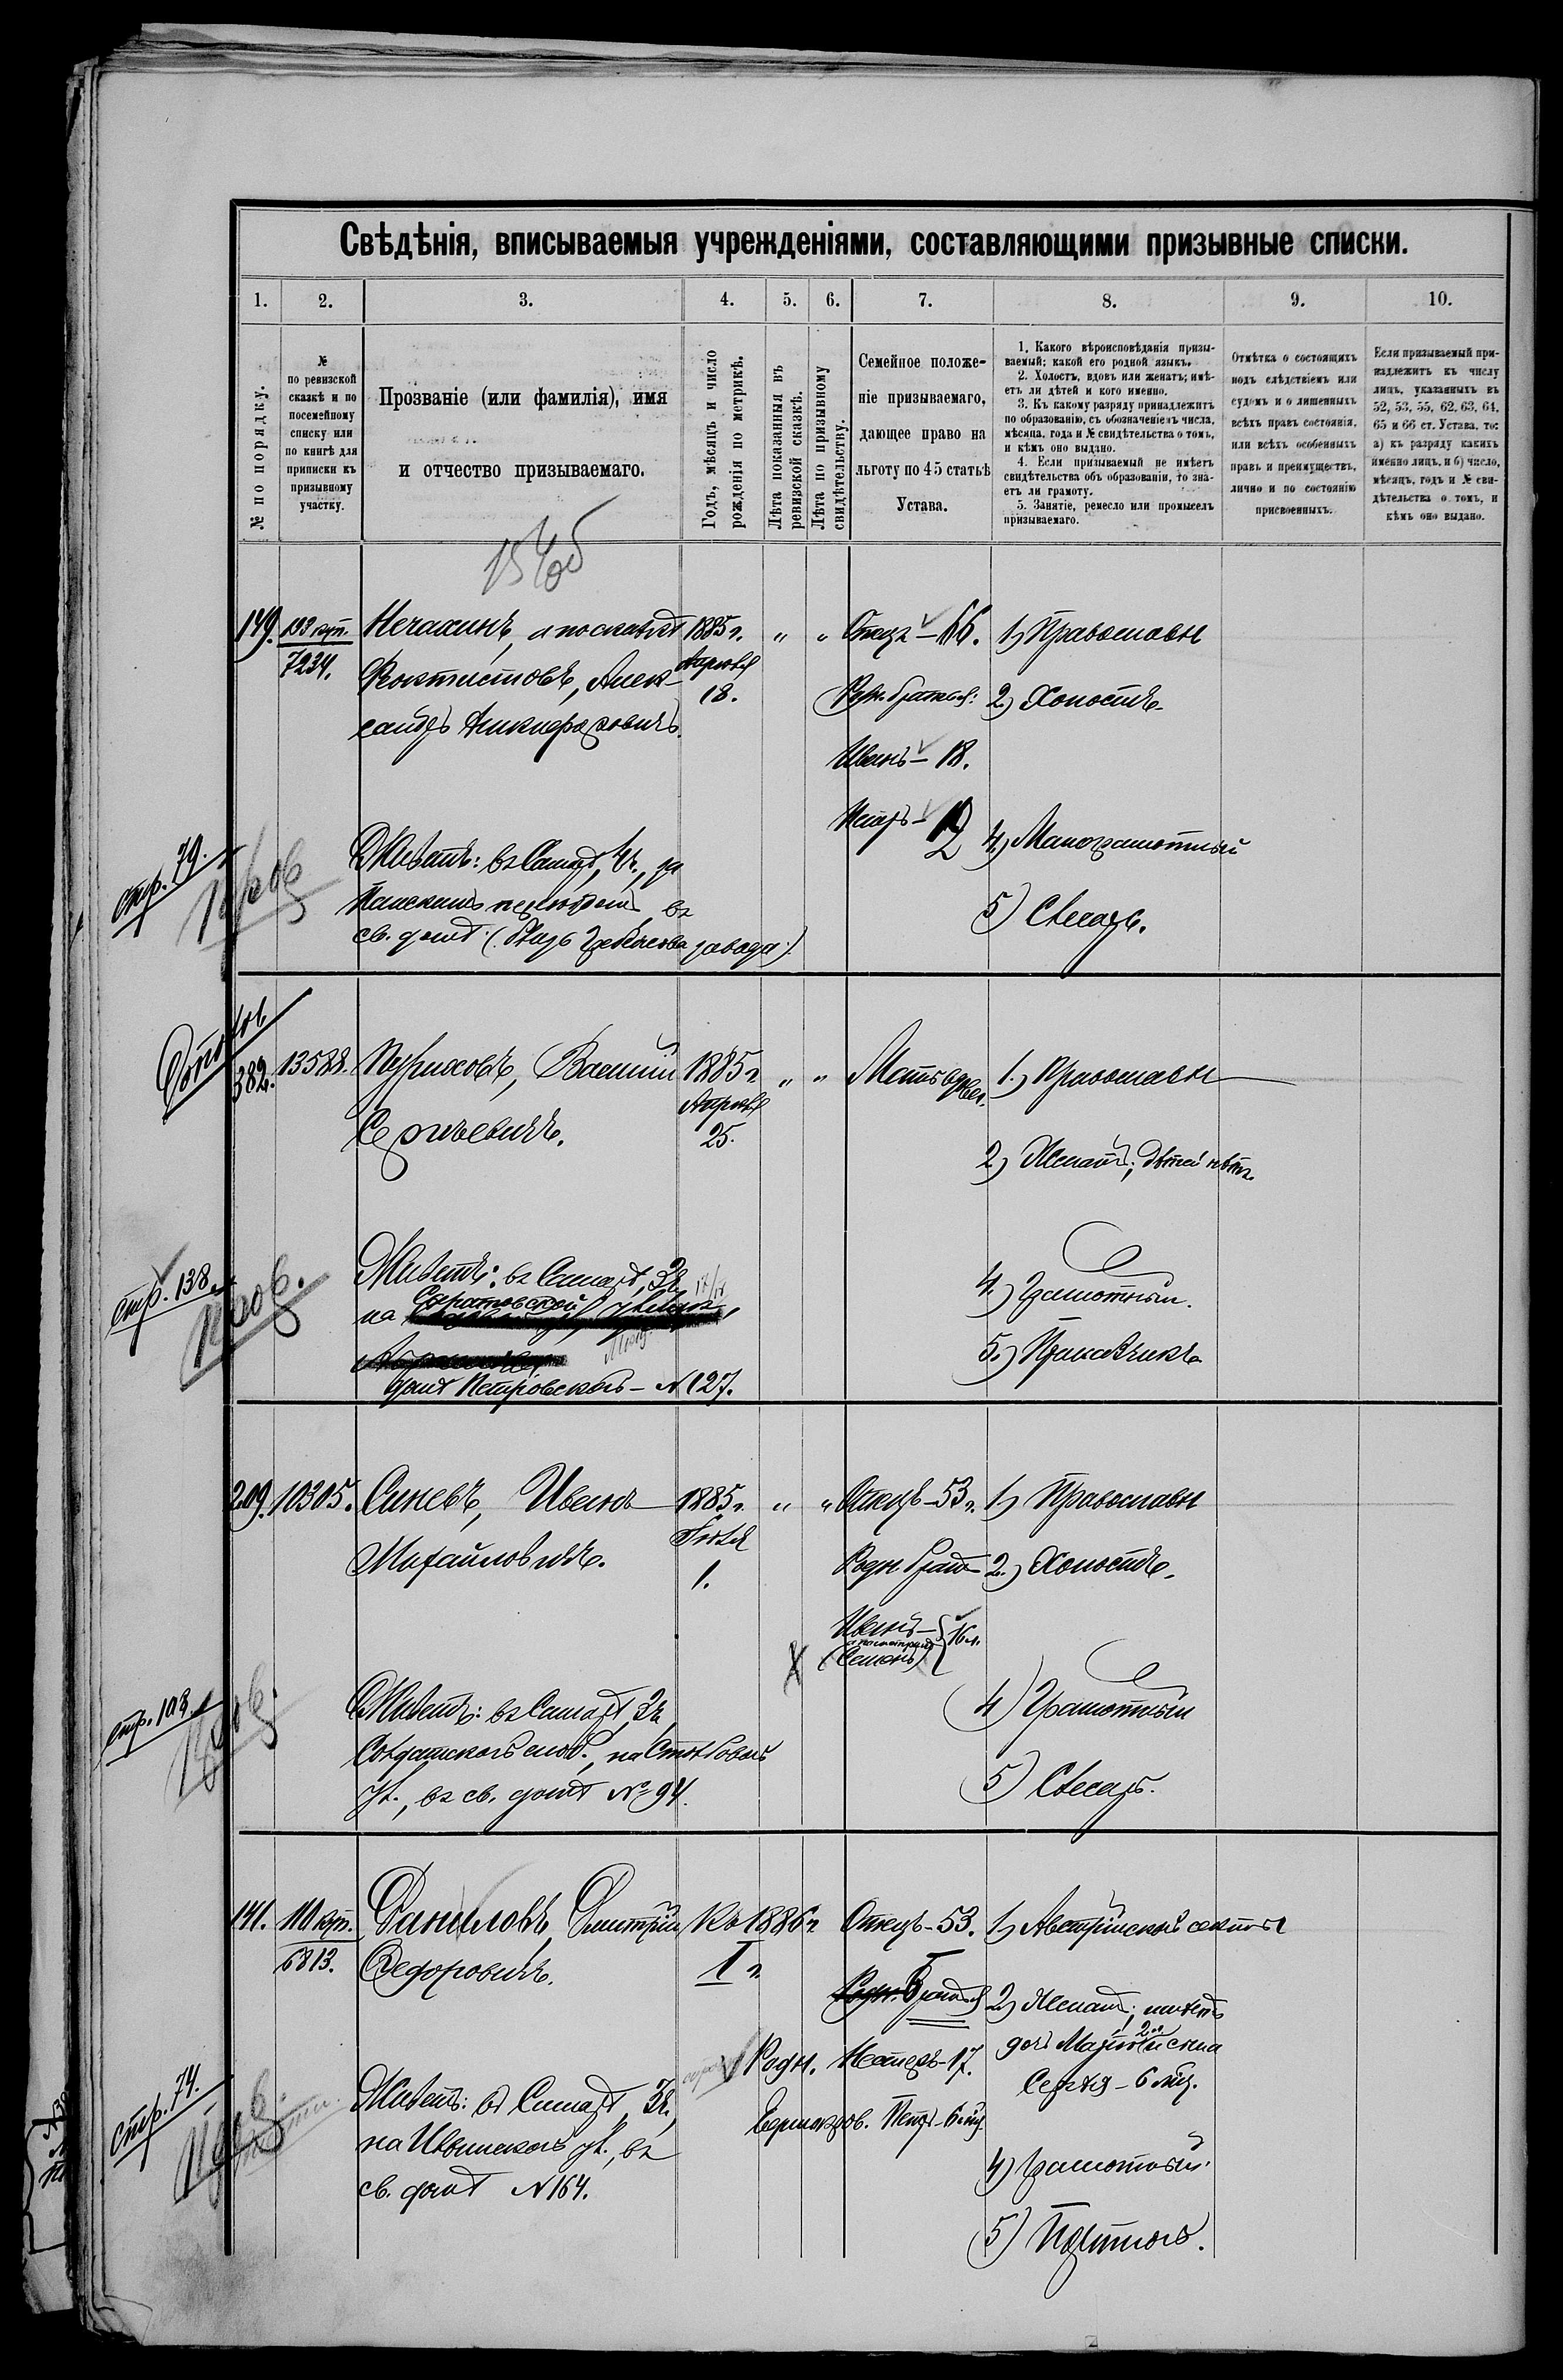 Свѣдѣнія, вписываемыя учрежденіями, составляющими призывные списки.
1. 2. 3. 4. 5. 6. 7. 8. 9. 10.
№ по порядку.
№
по ревизской
сказкѣ и по
посемейному
списку или
по книгѣ для
приписки къ
призывному
участку.
Прозваніе (или фамилія), имя
и отчество призываемаго.
Годъ, мѣсяцъ и число
рожденія по метрикѣ.
Лѣта показанныя въ
ревизской сказкѣ.
Лѣта по призывному
свидѣтельству.
Семейное положе-
ніе призываемаго,
дающее право на
льготу по 45 статьѣ
Устава.
1. Какого вѣроисповѣданія призы-
ваемый; какой его родной языкъ.
2. Холостъ, вдовъ или женатъ; имѣ-
етъ ли дѣтей и кого именно.
3. Къ какому разряду принадлежитъ
по образованію, съ обозначеніемъ числа,
мѣсяца, года и № свидѣтельства о томъ,
и кѣмъ оно выдано.
4. Если призываемый не имѣетъ
свидѣтельства объ образованіи, то зна-
етъ ли грамоту.
5. Занятіе, ремесло или промыселъ
призываемаго.
Отмѣтка о состоящихъ
подъ слѣдствіемъ или
судомъ и о лишенныхъ
всѣхъ правъ состоянія,
или всѣхъ особенныхъ
правъ и преимуществъ,
лично и по состоянію
присвоенныхъ.
Если призываемый при-
надлежитъ къ числу
лицъ, указанныхъ въ
52, 53, 55, 62, 63, 64,
65 и 66 ст. Устава, то:
а) къ разряду какихъ
именно лицъ, и б) число,
мѣсяцъ, годъ и № сви-
дѣтельства о томъ, и
кѣмъ оно выдано.
149. 193 куп. 1885 г. " " Отецъ - 66. 1) Православн
7234. Алек- Апрѣля
сандръ 18.
Родн. братья: 2) Холостъ.
Иванъ - 18.
Петръ - 12
стр. 79.
Живетъ: въ Самарѣ, 4 ч., за
въ
св. домѣ завода)
4) Малограмотный
5) Слесарь.
382. 13588. Василій 1885 г. " " Мать вдова. 1.) Православн
Сергѣевичъ. Апрѣля
25.
2) Женатъ; дѣтей нѣтъ.
стр. 138
Живетъ: въ Самарѣ, 3 ч.
на Саратовской улицѣ,
домъ Петровской - № 127.
4.) Грамотный.
5.) Прикащикъ
209. 10305. Синевъ, Иванъ 1885 г. " " Отецъ - 53 г. 1) Православн
Михайловичъ. Іюля
1.
Родн братъ 2.) Холостъ.
Иванъ - 16 л.
(Семенъ)
стр. 103
Живетъ: въ Самарѣ, 3 ч.
Солдатской слоб., на Столбовой
ул., въ св. домѣ № 94.
4) Грамотный
5) Слесарь.
141. 110 куп. Даниловъ, Дмитрій Къ 1886 г. Отецъ - 53. 1) Австрійской секты
6813. Федоровичъ. I г.
2) Женатъ;
дочь
Сергѣя - 6 мѣс.
Родн. - 17.
Петръ - 6 мѣс.
стр. 74.
Живетъ: въ Самарѣ, 3 ч.,
на Ильинской ул., въ
св. домѣ № 164.
4) Грамотный.
5)